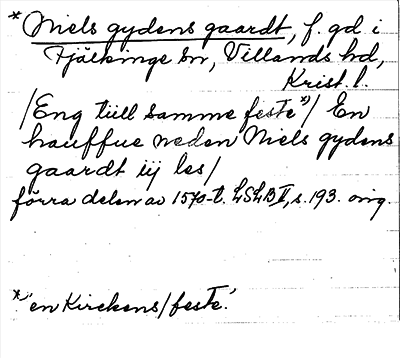 * Niels gydens gaardt, f. gd. i
Fjälkinge sn, Villands hd,
Krist. l.
/Eng till samme feste *)/ En
hauffue neden Niels gydens
gaardt iij les/
förra delen av 1570-t. LSLB II, s. 193. orig.
* 'en Kirckens/feste'.